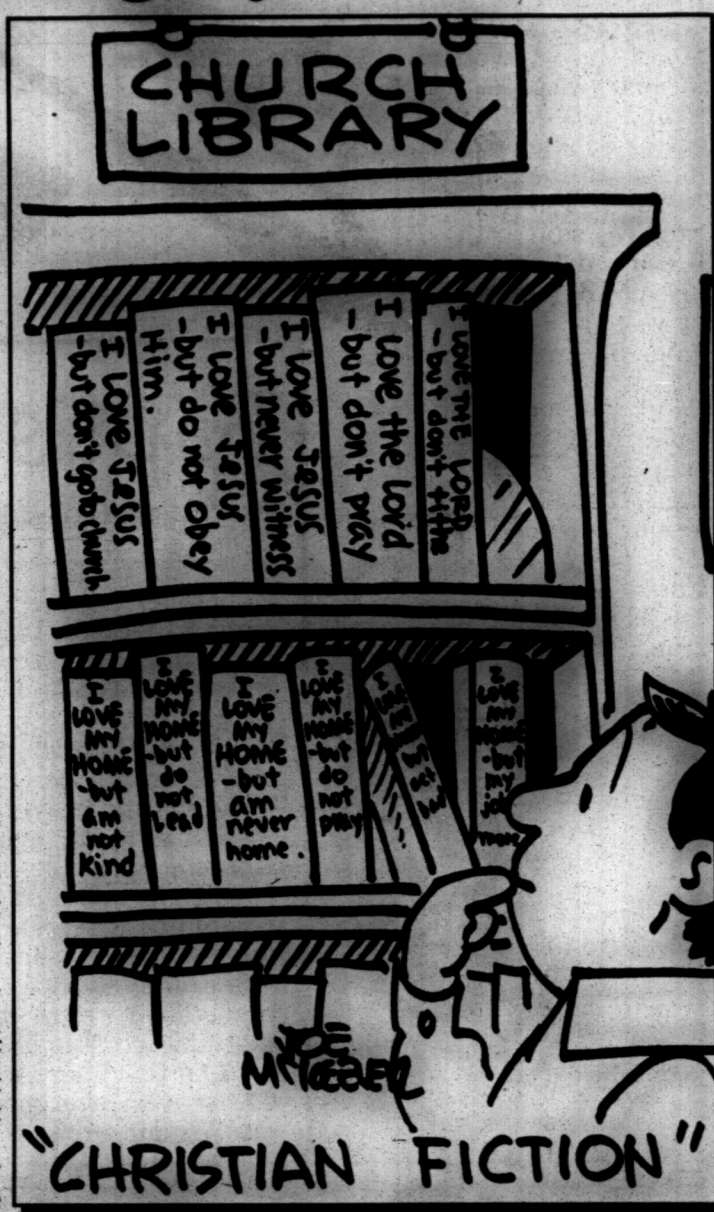 CHURCH
LIBRARY
I LOVE JESUS
-but don't go to church
I LOVE JESUS
-but do not obey
Him.
I LOVE JESUS
-but never witness
I LOVE the Lord
-but don't pray
I LOVE THE LORD
-but don't tithe
I
LOVE
my
HOME
-but
am
not
kind
I
LOVE
my
HOME
-but
do
not
lead
I
LOVE
my
HOME
-but
am
never
home.
I
LOVE
my
HOME
-but
do
not
pray
I
LOVE
my
but
my
JOE
McKEEVER
"CHRISTIAN FICTION"